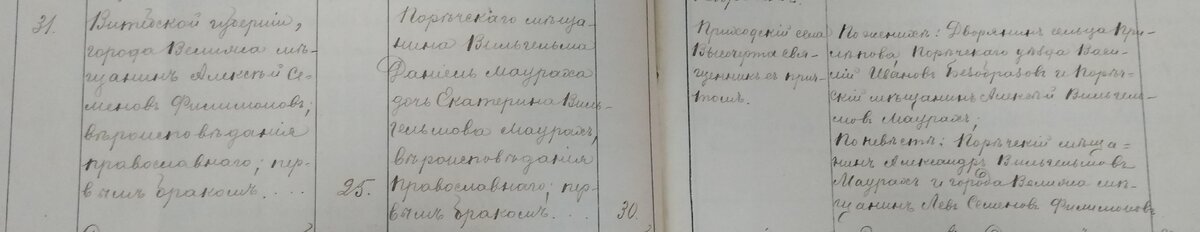 31.
Витебской губернiи,
города Велижа мѣ-
щанинъ Алексѣй Се-
меновъ Филимоновъ,
вѣроисповѣданiя
православнаго; пер-
вымъ бракомъ. . . .
25.
Порѣчскаго мѣща-
нина Вильгельма
Данiель Маураха
дочь Екатерина Виль-
гельмова Маурахъ,
вѣроисповѣданiя
православнаго; пер-
вымъ бракомъ. . .
30.
Приходскiй села
Высочерта свя-
щенникъ съ прич-
томъ.
По женихѣ: Дворянинъ сельца При-
Порѣчскаго уѣзда Васи-
лiй Ивановъ Безобразовъ и Порѣч-
скiй мѣщанинъ Алексѣй Вильгель-
мовъ Маурахъ;
По невѣстѣ: Порѣчскiй мѣща-
нинъ Александръ Вильгельмовъ
Маурахъ и города Велижа мѣ-
щанинъ Левъ Семеновъ Филимоновъ